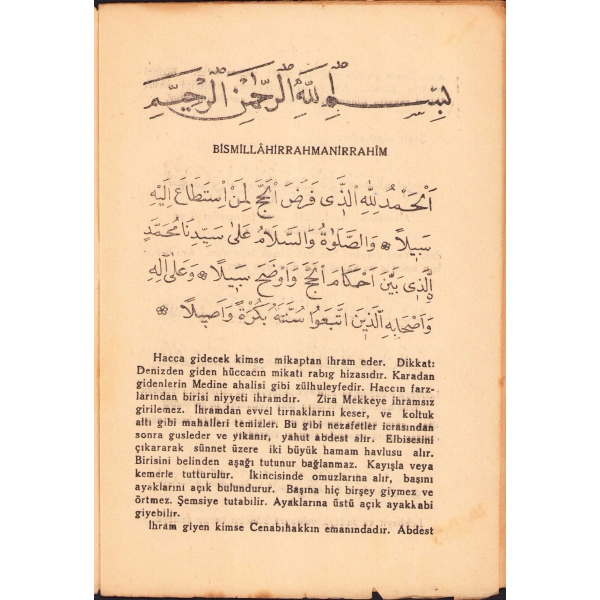 بِسْمِ اللّٰهِ الرَّحْمٰنِ الرَّحِيمِ
BİSMİLLÂHİRRAHMANİRRAHİM
اَلْحَمْدُ لِلّٰهِ الَّذٖى فَرَضَ الْحَجَّ لِمَنْ اِسْتَطَاعَ اِلَيْهِ
سَبٖيلًا ❀ وَالصَّلٰوةُ وَالسَّلَامُ عَلٰى سَيِّدِنَا مُحَمَّدٍ
الَّذٖى بَيَّنَ اَحْكَامَ الْحَجِّ وَاَوْضَحَ سَبٖيلًا ❀ وَعَلٰى اٰلِهٖ
وَاَصْحَابِهِ الَّذٖينَ اتَّبَعُوا سُنَّتَهُ بُكْرَةً وَاَصٖيلًا ❀
Hacca gidecek kimse mikaptan ihram eder. Dikkat:
Denizden giden hüccacın mikatı rabığ hizasıdır. Karadan
gidenlerin Medine ahalisi gibi zülhuleyfedir. Haccın farz-
larından birisi niyyeti ihramdır. Zira Mekkeye ihramsız
girilemez. İhramdan evvel tırnaklarını keser, ve koltuk
altı gibi mahalleri temizler. Bu gibi nezafetler icrasından
sonra gusleder ve yıkanır, yahut abdest alır. Elbisesini
çıkararak sünnet üzere iki büyük hamam havlusu alır.
Birisini belinden aşağı tutunur bağlanmaz. Kayışla veya
kemerle tutturulur. İkincisinde omuzlarına alır, başını
ayaklarını açık bulundurur. Başına hiç birşey giymez ve
örtmez. Şemsiye tutabilir. Ayaklarına üstü açık ayakkabı
giyebilir.
İhram giyen kimse Cenabıhakkın emanındadır. Abdest